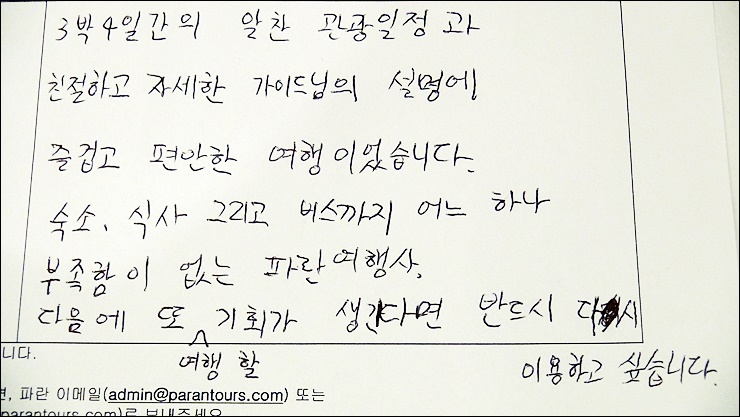 3박4일간의 알찬 관광일정과
친절하고 자세한 가이드님의 설명에
즐겁고 편안한 여행이었습니다.
숙소, 식사 그리고 버스까지 어느 하나
부족함이 없는 파란여행사.
다음에 또 기회가 생긴다면 반드시 다시
여행 할
이용하고 싶습니다.
니다.
면, 파란 이메일(admin@parantours.com) 또는
parantours.com)로 보내주세요